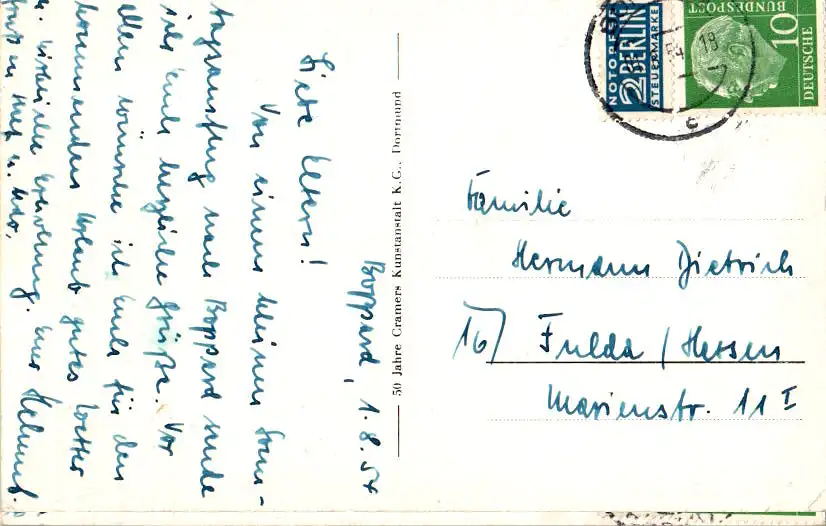 Boppard, 1.8.54
Liebe Eltern!
Von einem kleinen Sonn-
tagsausflug nach Boppard sende
ich Euch herzliche Grüße. Vor
allem wünsche ich Euch für den
kommenden Urlaub gutes Wetter
u. Erholung. Euer Helmut.
Gruß an
50 Jahre Cramers Kunstanstalt K.G., Dortmund
NOTOPFER
2 BERLIN
STEUERMARKE
10
DEUTSCHE
BUNDESPOST
54 18
c
Familie
Hermann Dietrich
16) Fulda / Hessen
Marienstr. 11 I